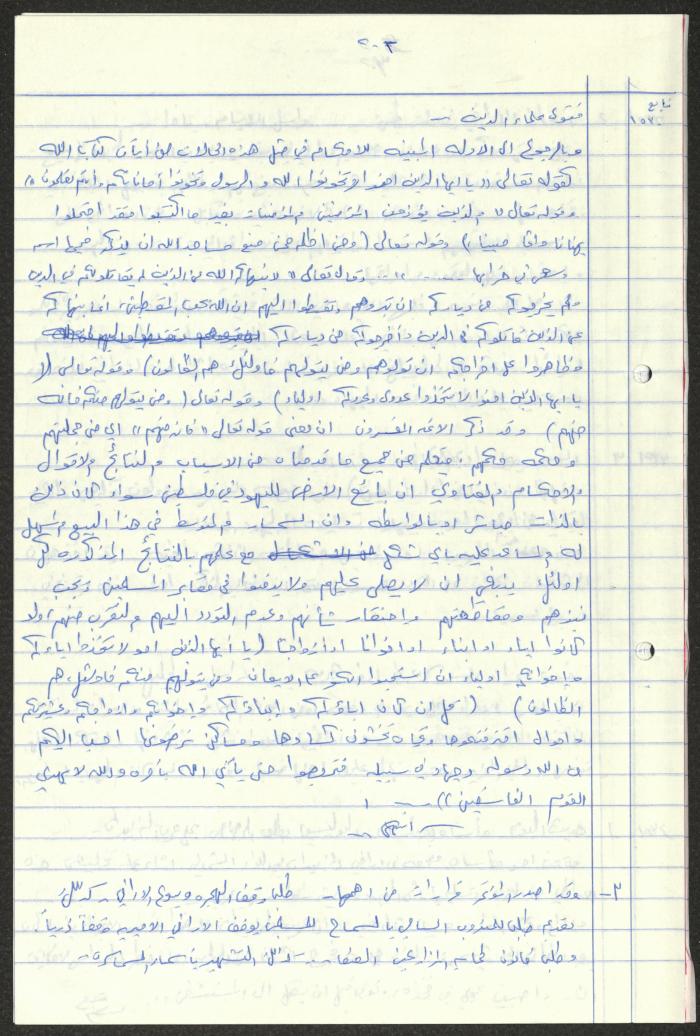 ٢٠٣
تابع
فتوى علماء الدين :-
وبالرجوع الى الادله المبينه للاحكام في مثل هذه الحالات من آيات كتاب الله
كقوله تعالى (( يا ايها الذين امنوا لا تخونوا الله والرسول وتخونوا أماناتكم وأنتم تعلمون ))
وقوله تعالى (( والذين يؤذون المؤمنين والمؤمنات بغير ما اكتسبوا فقد احتملوا
بهتانا واثما مبينا )) وقوله تعالى ( ومن اظلم ممن منع مساجد الله ان يذكر فيها اسمه
وسعى في خرابها ...... وقال تعالى (( لا ينهاكم الله عن الذين لم يقاتلوكم في الدين
ولم يخرجوكم من دياركم ان تبروهم وتقسطوا اليهم ان الله يحب المقسطين، انما ينهاكم
عن الذين قاتلوكم في الدين وأخرجوكم من دياركم
وظاهروا على اخراجكم ان تولوهم ومن يتولهم فاولئك هم الظالمون ) وقوله تعالى ((
يا ايها الذين امنوا لا تتخذوا عدوى وعدوكم اولياء ) وقوله تعالى ( ومن يتولهم منكم فانه
منهم ) وقد ذكر الائمه المفسرون ان معنى قوله تعالى (( فانه منهم )) اي من جملتهم
وحكمه حكمهم، فيعلم من جميع ما قدمناه من الاسباب والنتائج والاقوال
والاحكام والفتاوي ان بائع الارض لليهود في فلسطين سواء كان ذلك
بالذات مباشر او بالواسطه وان السمسار والمتوسط في هذا البيع والمسهل
له والمساعد عليه باي شكل مع علمهم بالنتائج المذكوره كل
اولئك ينبغي ان لا يصلى عليهم ولا يدفنوا في مقابر المسلمين ويجب
نبذهم ومقاطعتهم واحتقار شأنهم وعدم التودد اليهم والتقرب منهم ولو
كانوا اباء او ابناء او اخوانا او ازواجا ( يا أيها الذين امنو لا تتخذوا اباءكم
واخوانكم اولياء ان استحبوا الكفر على الايمان ومن يتولهم منكم فاولئك هم
الظالمون ) ( قل ان كان اباؤكم وابناؤكم واخوانكم وازواجكم وعشيرتكم
واموال اقترفتموها وتجارة تخشون كسادها ومساكن ترضونها احب اليكم
من الله ورسوله وجهاد في سبيله فتربصوا حتى يأتي الله بأمره والله لا يهدي
القوم الفاسقين ))
- انتهى -
٣- وقد اصدر المؤتمر قرارات من اهمها طلب وقف الهجره وبيوع الاراضي - كذلك
تقديم طلب للمندوب السامي بالسماح للمسلمين بوقف الاراضي الاميريه وقفا ذرياً
وطلب قانون لحماية المزارعين - كذلك التشهير بأسماء السماسرة -